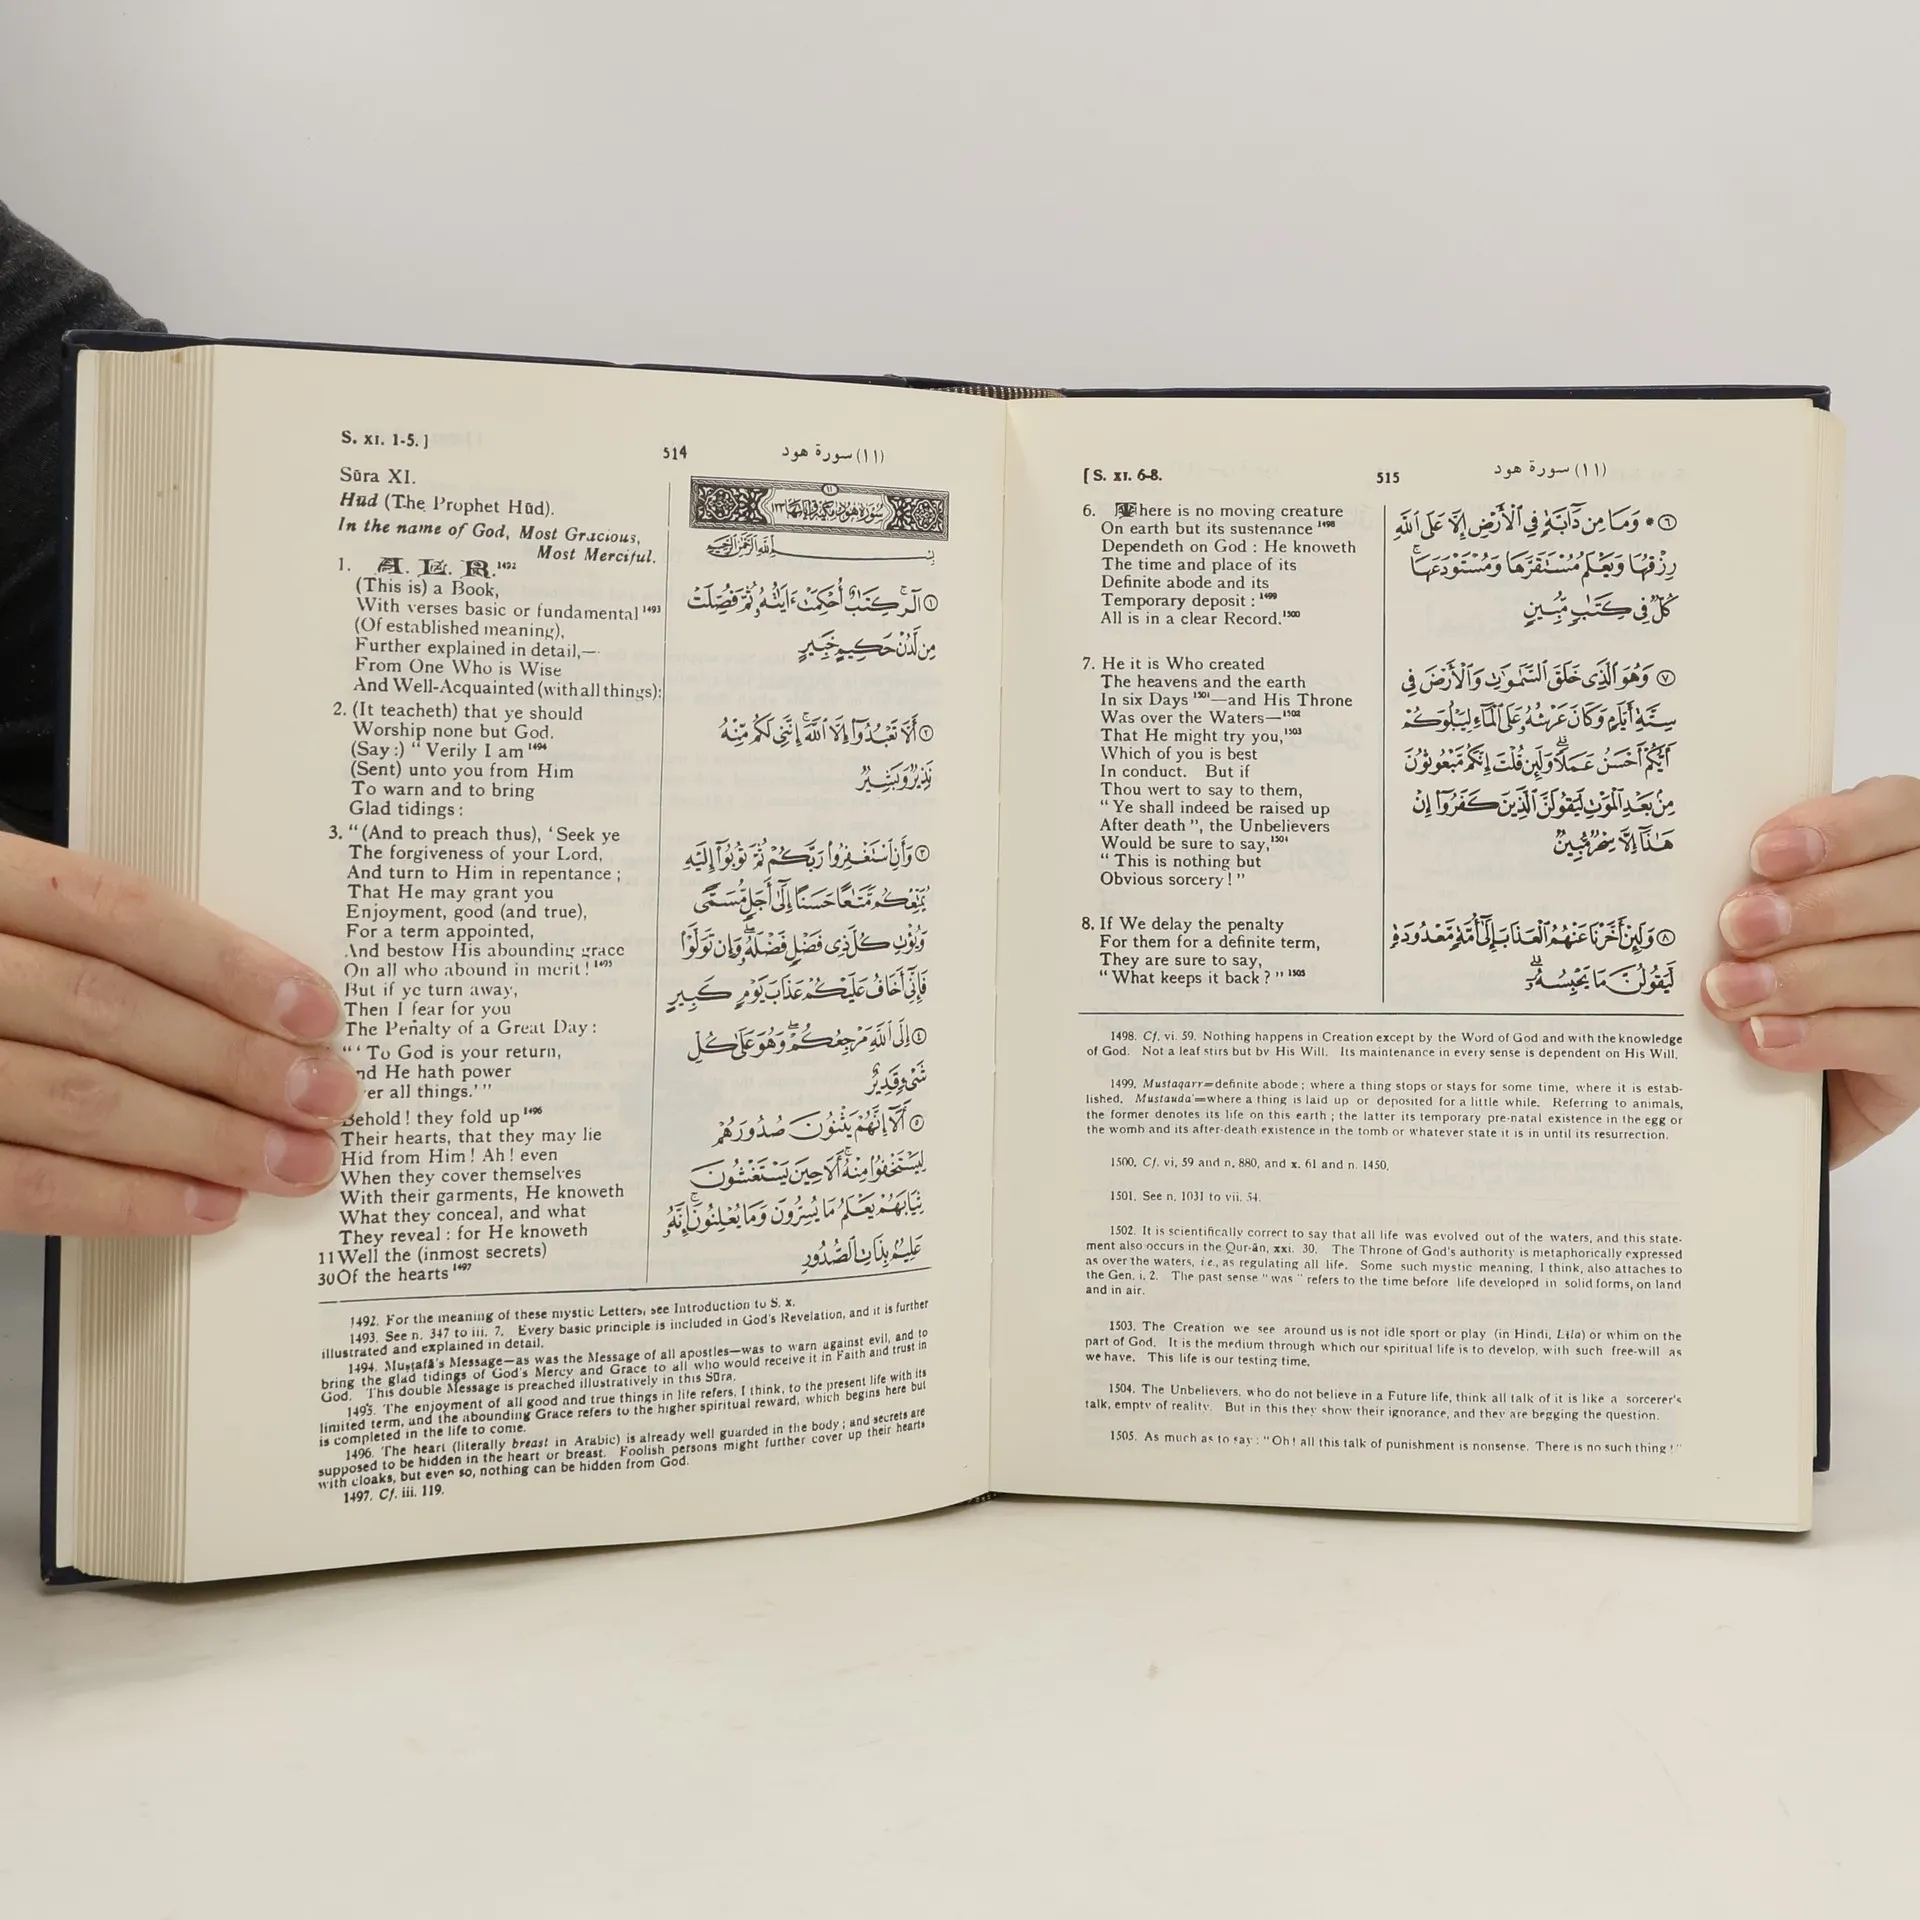 S. XI. 1-5.]
514
(١١) سورة هود
Sūra XI.
Hūd (The Prophet Hūd).
In the name of God, Most Gracious,
Most Merciful.
1. A. L. R.1492
(This is) a Book,
With verses basic or fundamental1493
(Of established meaning),
Further explained in detail,—
From One Who is Wise
And Well-Acquainted (with all things):
2. (It teacheth) that ye should
Worship none but God.
(Say:) "Verily I am1494
(Sent) unto you from Him
To warn and to bring
Glad tidings:
3. "(And to preach thus), 'Seek ye
The forgiveness of your Lord,
And turn to Him in repentance;
That He may grant you
Enjoyment, good (and true),
For a term appointed,
And bestow His abounding grace
On all who abound in merit!1495
But if ye turn away,
Then I fear for you
The Penalty of a Great Day:
"'To God is your return,
nd He hath power
er all things.'"
Behold! they fold up1496
Their hearts, that they may lie
Hid from Him! Ah! even
When they cover themselves
With their garments, He knoweth
What they conceal, and what
They reveal: for He knoweth
11 Well the (inmost secrets)
30 Of the hearts1497
١١
سورة هود مكية وآياتها ١٢٣
بِسْمِ اللَّهِ الرَّحْمَنِ الرَّحِيمِ
① الٓر ۚ كِتَٰبٌ أُحْكِمَتْ ءَايَٰتُهُۥ ثُمَّ فُصِّلَتْ
مِن لَّدُنْ حَكِيمٍ خَبِيرٍ
② أَلَّا تَعْبُدُوٓا۟ إِلَّا ٱللَّهَ ۚ إِنَّنِى لَكُم مِّنْهُ
نَذِيرٌ وَبَشِيرٌ
③ وَأَنِ ٱسْتَغْفِرُوا۟ رَبَّكُمْ ثُمَّ تُوبُوٓا۟ إِلَيْهِ
يُمَتِّعْكُم مَّتَٰعًا حَسَنًا إِلَىٰٓ أَجَلٍ مُّسَمًّى
وَيُؤْتِ كُلَّ ذِى فَضْلٍ فَضْلَهُۥ ۖ وَإِن تَوَلَّوْا۟
فَإِنِّىٓ أَخَافُ عَلَيْكُمْ عَذَابَ يَوْمٍ كَبِيرٍ
④ إِلَى ٱللَّهِ مَرْجِعُكُمْ ۖ وَهُوَ عَلَىٰ كُلِّ
شَىْءٍ قَدِيرٌ
⑤ أَلَآ إِنَّهُمْ يَثْنُونَ صُدُورَهُمْ
لِيَسْتَخْفُوا۟ مِنْهُ ۚ أَلَا حِينَ يَسْتَغْشُونَ
ثِيَابَهُمْ يَعْلَمُ مَا يُسِرُّونَ وَمَا يُعْلِنُونَ ۚ إِنَّهُۥ
عَلِيمٌۢ بِذَاتِ ٱلصُّدُورِ
1492. For the meaning of these mystic Letters, see Introduction to S. x.
1493. See n. 347 to iii. 7. Every basic principle is included in God's Revelation, and it is further
illustrated and explained in detail.
1494. Muṣṭafā's Message—as was the Message of all apostles—was to warn against evil, and to
bring the glad tidings of God's Mercy and Grace to all who would receive it in Faith and trust in
God. This double Message is preached illustratively in this Sūra.
1495. The enjoyment of all good and true things in life refers, I think, to the present life with its
limited term, and the abounding Grace refers to the higher spiritual reward, which begins here but
is completed in the life to come.
1496. The heart (literally breast in Arabic) is already well guarded in the body; and secrets are
supposed to be hidden in the heart or breast. Foolish persons might further cover up their hearts
with cloaks, but even so, nothing can be hidden from God.
1497. Cf. iii. 119.
[S. XI. 6-8.
515
(١١) سورة هود
6. There is no moving creature
On earth but its sustenance1498
Dependeth on God: He knoweth
The time and place of its
Definite abode and its
Temporary deposit:1499
All is in a clear Record.1500
7. He it is Who created
The heavens and the earth
In six Days1501—and His Throne
Was over the Waters—1502
That He might try you,1503
Which of you is best
In conduct. But if
Thou wert to say to them,
"Ye shall indeed be raised up
After death", the Unbelievers
Would be sure to say,1504
"This is nothing but
Obvious sorcery!"
8. If We delay the penalty
For them for a definite term,
They are sure to say,
"What keeps it back?"1505
⑥ • وَمَا مِن دَآبَّةٍ فِى ٱلْأَرْضِ إِلَّا عَلَى ٱللَّهِ
رِزْقُهَا وَيَعْلَمُ مُسْتَقَرَّهَا وَمُسْتَوْدَعَهَا ۚ
كُلٌّ فِى كِتَٰبٍ مُّبِينٍ
⑦ وَهُوَ ٱلَّذِى خَلَقَ ٱلسَّمَٰوَٰتِ وَٱلْأَرْضَ فِى
سِتَّةِ أَيَّامٍ وَكَانَ عَرْشُهُۥ عَلَى ٱلْمَآءِ لِيَبْلُوَكُمْ
أَيُّكُمْ أَحْسَنُ عَمَلًا ۗ وَلَئِن قُلْتَ إِنَّكُم مَّبْعُوثُونَ
مِنۢ بَعْدِ ٱلْمَوْتِ لَيَقُولَنَّ ٱلَّذِينَ كَفَرُوٓا۟ إِنْ
هَٰذَآ إِلَّا سِحْرٌ مُّبِينٌ
⑧ وَلَئِنْ أَخَّرْنَا عَنْهُمُ ٱلْعَذَابَ إِلَىٰٓ أُمَّةٍ مَّعْدُودَةٍ
لَّيَقُولُنَّ مَا يَحْبِسُهُۥٓ ۗ
1498. Cf. vi. 59. Nothing happens in Creation except by the Word of God and with the knowledge
of God. Not a leaf stirs but by His Will. Its maintenance in every sense is dependent on His Will.
1499. Mustaqarr=definite abode; where a thing stops or stays for some time, where it is estab-
lished. Mustauda'=where a thing is laid up or deposited for a little while. Referring to animals,
the former denotes its life on this earth; the latter its temporary pre-natal existence in the egg or
the womb and its after-death existence in the tomb or whatever state it is in until its resurrection.
1500. Cf. vi, 59 and n. 880, and x. 61 and n. 1450.
1501. See n. 1031 to vii. 54.
1502. It is scientifically correct to say that all life was evolved out of the waters, and this state-
ment also occurs in the Qur-ān, xxi. 30. The Throne of God's authority is metaphorically expressed
as over the waters, i.e., as regulating all life. Some such mystic meaning, I think, also attaches to
the Gen. i. 2. The past sense "was" refers to the time before life developed in solid forms, on land
and in air.
1503. The Creation we see around us is not idle sport or play (in Hindi, Lila) or whim on the
part of God. It is the medium through which our spiritual life is to develop, with such free-will as
we have. This life is our testing time.
1504. The Unbelievers, who do not believe in a Future life, think all talk of it is like a sorcerer's
talk, empty of reality. But in this they show their ignorance, and they are begging the question.
1505. As much as to say: "Oh! all this talk of punishment is nonsense. There is no such thing!"